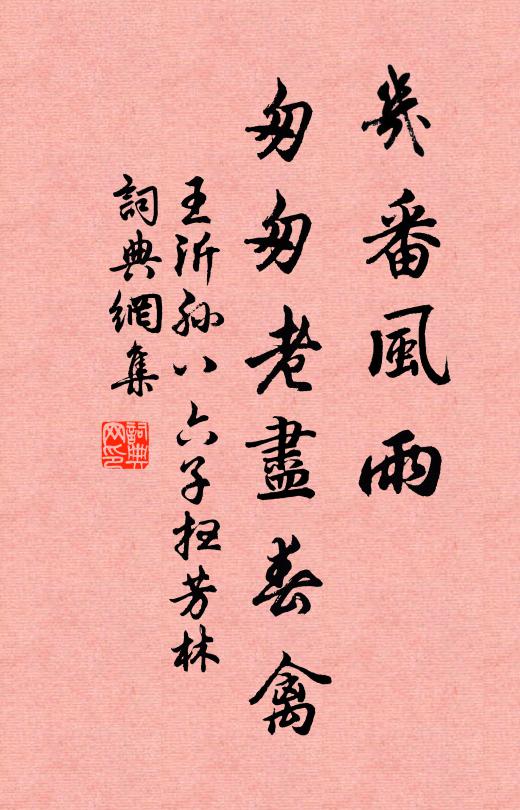 幾番風雨
匆匆老盡春禽
王沂孫八六子掃芳林
詞典網集
詞典网印